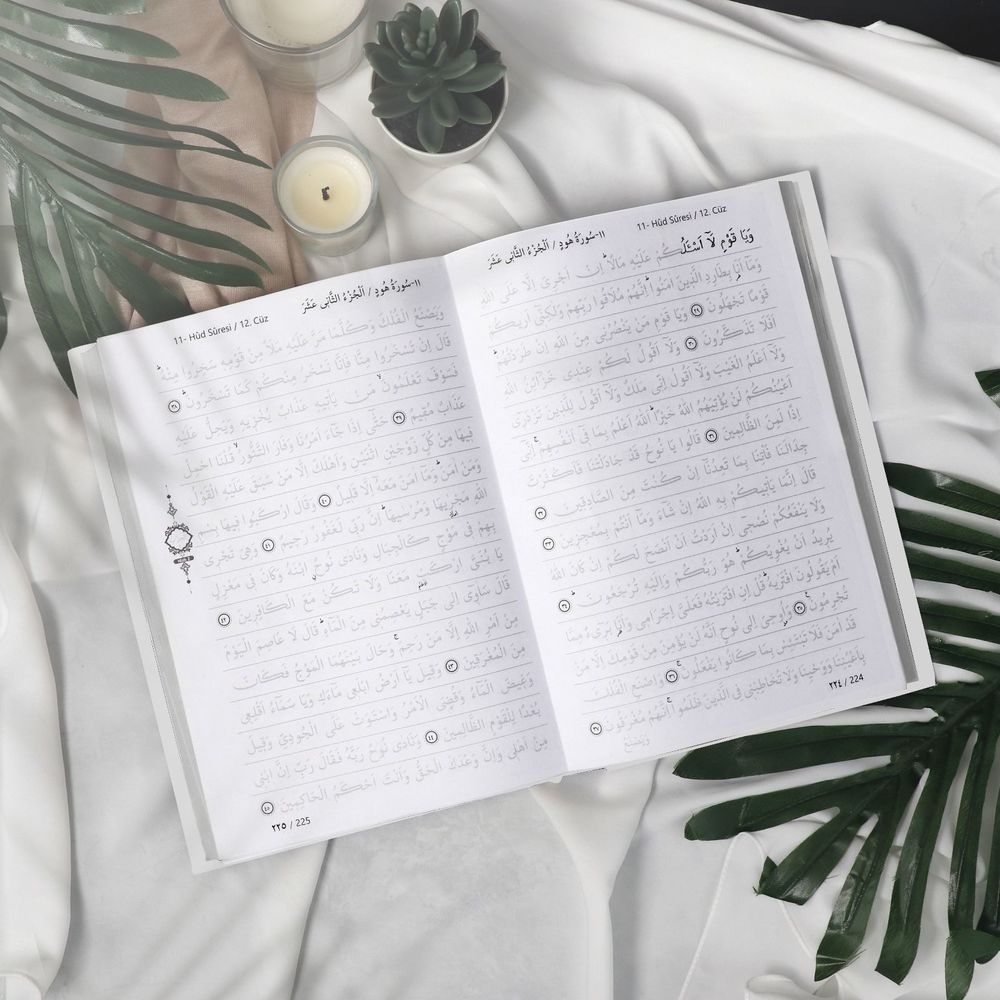 ١١-سُورَةُ هُودٍ / اَلْجُزْءُ الثَّانِى عَشَرَ 11- Hûd Sûresi / 12. Cüz
وَيَا قَوْمِ لَآ اَسْـَٔلُكُمْ عَلَيْهِ مَالًا اِنْ اَجْرِىَ اِلَّا عَلَى اللّٰهِ
وَمَآ اَنَا بِطَارِدِ الَّذِينَ اٰمَنُوا اِنَّهُمْ مُلَاقُوا رَبِّهِمْ وَلٰكِنِّى اَرٰيكُمْ
قَوْمًا تَجْهَلُونَ ٢٩ وَيَا قَوْمِ مَنْ يَنْصُرُنِى مِنَ اللّٰهِ اِنْ طَرَدْتُهُمْ
اَفَلَا تَذَكَّرُونَ ٣٠ وَلَآ اَقُولُ لَكُمْ عِنْدِى خَزَآئِنُ اللّٰهِ
وَلَآ اَعْلَمُ الْغَيْبَ وَلَآ اَقُولُ اِنِّى مَلَكٌ وَلَآ اَقُولُ لِلَّذِينَ تَزْدَرِى
اَعْيُنُكُمْ لَنْ يُؤْتِيَهُمُ اللّٰهُ خَيْرًا اَللّٰهُ اَعْلَمُ بِمَا فِى اَنْفُسِهِمْ اِنِّى
اِذًا لَمِنَ الظَّالِمِينَ ٣١ قَالُوا يَا نُوحُ قَدْ جَادَلْتَنَا فَاَكْثَرْتَ
جِدَالَنَا فَأْتِنَا بِمَا تَعِدُنَآ اِنْ كُنْتَ مِنَ الصَّادِقِينَ ٣٢
قَالَ اِنَّمَا يَأْتِيكُمْ بِهِ اللّٰهُ اِنْ شَآءَ وَمَآ اَنْتُمْ بِمُعْجِزِينَ ٣٣
وَلَا يَنْفَعُكُمْ نُصْحِى اِنْ اَرَدْتُ اَنْ اَنْصَحَ لَكُمْ اِنْ كَانَ اللّٰهُ
يُرِيدُ اَنْ يُغْوِيَكُمْ هُوَ رَبُّكُمْ وَاِلَيْهِ تُرْجَعُونَ ٣٤
اَمْ يَقُولُونَ افْتَرٰيهُ قُلْ اِنِ افْتَرَيْتُهُ فَعَلَىَّ اِجْرَامِى وَاَنَا بَرِىءٌ مِمَّا
تُجْرِمُونَ ٣٥ وَاُوحِىَ اِلٰى نُوحٍ اَنَّهُ لَنْ يُؤْمِنَ مِنْ قَوْمِكَ اِلَّا مَنْ
قَدْ اٰمَنَ فَلَا تَبْتَئِسْ بِمَا كَانُوا يَفْعَلُونَ ٣٦ وَاصْنَعِ الْفُلْكَ
بِاَعْيُنِنَا وَوَحْيِنَا وَلَا تُخَاطِبْنِى فِى الَّذِينَ ظَلَمُوا اِنَّهُمْ مُغْرَقُونَ ٣٧
وَيَصْنَعُ
٢٢٤ / 224
11- Hûd Sûresi / 12. Cüz ١١-سُورَةُ هُودٍ / اَلْجُزْءُ الثَّانِى عَشَرَ
وَيَصْنَعُ الْفُلْكَ وَكُلَّمَا مَرَّ عَلَيْهِ مَلَأٌ مِنْ قَوْمِهِ سَخِرُوا مِنْهُ
قَالَ اِنْ تَسْخَرُوا مِنَّا فَاِنَّا نَسْخَرُ مِنْكُمْ كَمَا تَسْخَرُونَ ٣٨
فَسَوْفَ تَعْلَمُونَ مَنْ يَأْتِيهِ عَذَابٌ يُخْزِيهِ وَيَحِلُّ عَلَيْهِ
عَذَابٌ مُقِيمٌ ٣٩ حَتّٰى اِذَا جَآءَ اَمْرُنَا وَفَارَ التَّنُّورُ قُلْنَا احْمِلْ
فِيهَا مِنْ كُلٍّ زَوْجَيْنِ اثْنَيْنِ وَاَهْلَكَ اِلَّا مَنْ سَبَقَ عَلَيْهِ الْقَوْلُ
وَمَنْ اٰمَنَ وَمَآ اٰمَنَ مَعَهُ اِلَّا قَلِيلٌ ٤٠ وَقَالَ ارْكَبُوا فِيهَا بِسْمِ
اللّٰهِ مَجْرٰيهَا وَمُرْسٰيهَا اِنَّ رَبِّى لَغَفُورٌ رَحِيمٌ ٤١ وَهِىَ تَجْرِى
بِهِمْ فِى مَوْجٍ كَالْجِبَالِ وَنَادٰى نُوحٌ ابْنَهُ وَكَانَ فِى مَعْزِلٍ
يَا بُنَىَّ ارْكَبْ مَعَنَا وَلَا تَكُنْ مَعَ الْكَافِرِينَ ٤٢
قَالَ سَاٰوِى اِلٰى جَبَلٍ يَعْصِمُنِى مِنَ الْمَآءِ قَالَ لَا عَاصِمَ الْيَوْمَ
مِنْ اَمْرِ اللّٰهِ اِلَّا مَنْ رَحِمَ وَحَالَ بَيْنَهُمَا الْمَوْجُ فَكَانَ
مِنَ الْمُغْرَقِينَ ٤٣ وَقِيلَ يَآ اَرْضُ ابْلَعِى مَآءَكِ وَيَا سَمَآءُ اَقْلِعِى
وَغِيضَ الْمَآءُ وَقُضِىَ الْاَمْرُ وَاسْتَوَتْ عَلَى الْجُودِىِّ وَقِيلَ
بُعْدًا لِلْقَوْمِ الظَّالِمِينَ ٤٤ وَنَادٰى نُوحٌ رَبَّهُ فَقَالَ رَبِّ اِنَّ ابْنِى
مِنْ اَهْلِى وَاِنَّ وَعْدَكَ الْحَقُّ وَاَنْتَ اَحْكَمُ الْحَاكِمِينَ ٤٥
٢٢٥ / 225